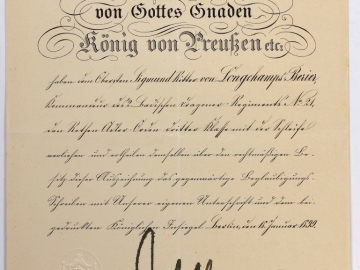 von Gottes Gnaden
König von Preußen etc:
haben dem Obersten Sigmund Ritter von Longchamps Berier,
Kommandeur des Dragoner-Regiments No 21,
den Rothen Adler-Orden dritter Klasse mit der Schleife
verliehen und ertheilen demselben über den rechtmäßigen Be-
sitz dieser Auszeichnung das gegenwärtige Beglaubigungs-
Schreiben mit Unserer eigenen Unterschrift und dem bei-
gedruckten Königlichen Insiegel. Berlin, den Januar